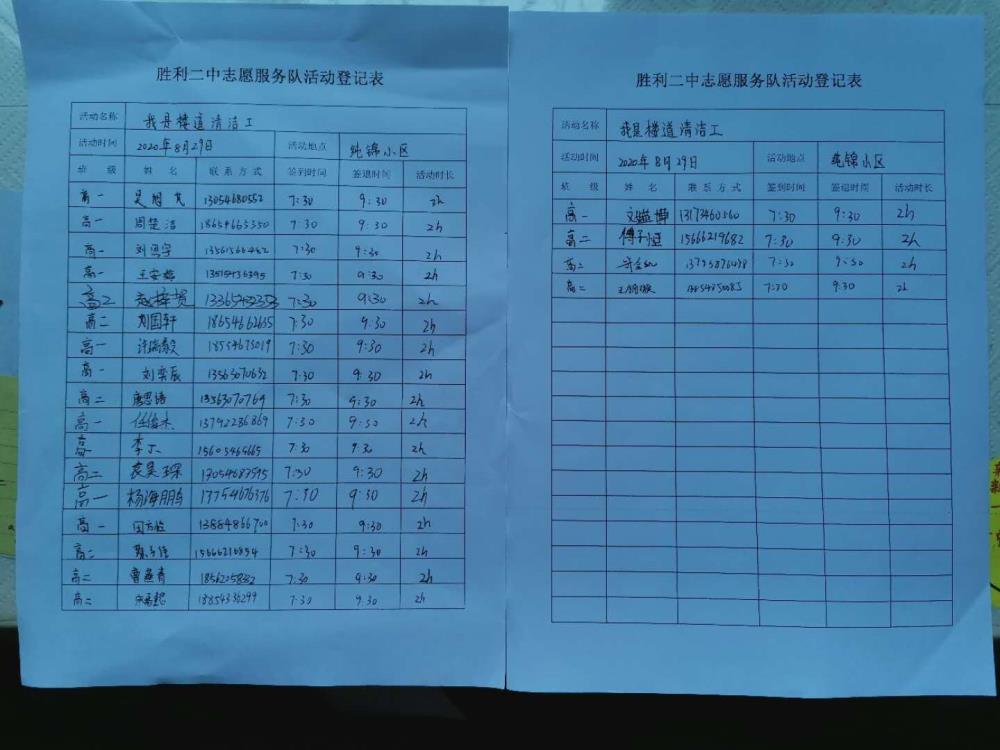 胜利二中志愿服务队活动登记表
活动名称 我是楼道清洁工
活动时间 2020年8月29日 活动地点 纯锦小区
班 级 姓 名 联系方式 签到时间 签退时间 活动时长
高一 13054680552 7:30 9:30 2h
高一 周楚洁 18654665350 7:30 9:30 2h
高一 刘思宇 7:30 9:30 2h
高一 王安婷 7:30 9:30 2h
高二 7:30 9:30 2h
高二 刘国轩 18654662635 7:30 9:30 2h
高一 许瑞毅 7:30 9:30 2h
高一 刘奕辰 13563070632 7:30 9:30 2h
高二 唐思语 13563070769 7:30 9:30 2h
高一 任俊杰 13792286869 7:30 9:30 2h
李丁 15605465665 7:30 9:30 2h
高二 13054687595 7:30 9:30 2h
高一 杨海鹏 13754676376 7:30 9:30 2h
高一 13884866700 7:30 9:30 2h
高二 7:30 9:30 2h
高二 曹燕青 7:30 9:30 2h
高二 7:30 9:30 2h
胜利二中志愿服务队活动登记表
活动名称 我是楼道清洁工
活动时间 2020年8月29日 活动地点 纯锦小区
班 级 姓 名 联系方式 签到时间 签退时间 活动时长
高一 7:30 9:30 2h
高二 傅子恒 15666219682 7:30 9:30 2h
高二 7:30 9:30 2h
高二 7:30 9:30 2h